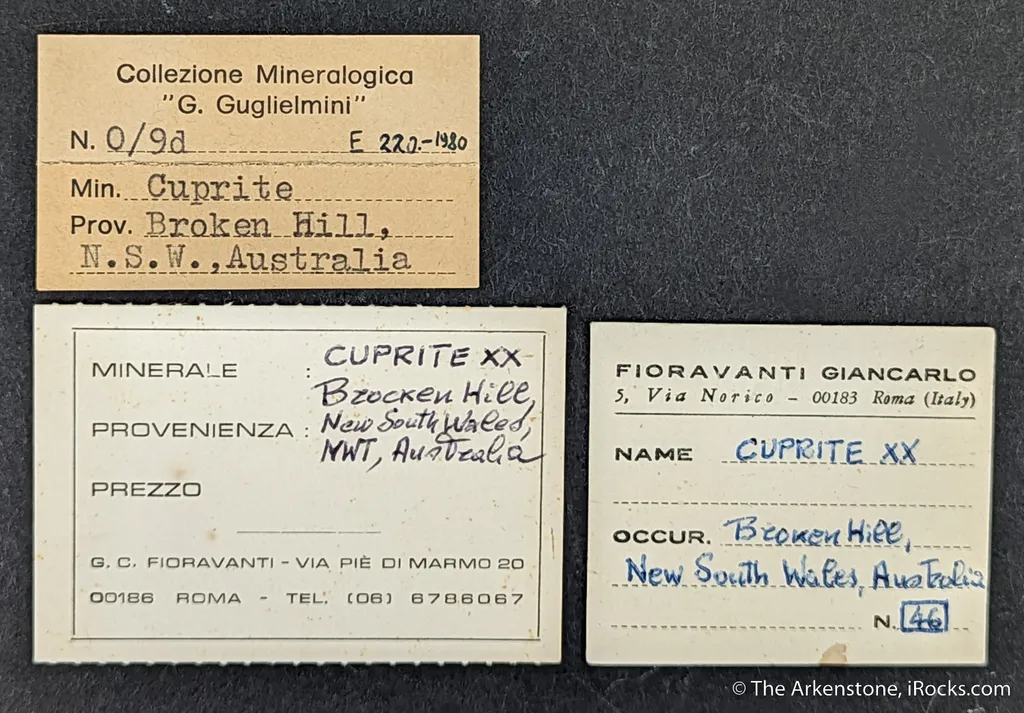 Collezione Mineralogica
"G. Guglielmini"
N. 0/9d E 220.-1980
Min. Cuprite
Prov. Broken Hill,
N.S.W., Australia
MINERALE : CUPRITE XX
Brocken Hill,
PROVENIENZA : New South Wales,
NWT, Australia
PREZZO
G. C. FIORAVANTI - VIA PIÈ DI MARMO 20
00186 ROMA - TEL. (06) 6786067
FIORAVANTI GIANCARLO
5, Via Norico - 00183 Roma (Italy)
NAME CUPRITE XX
OCCUR. Broken Hill,
New South Wales, Australia
N. 46
© The Arkenstone, iRocks.com